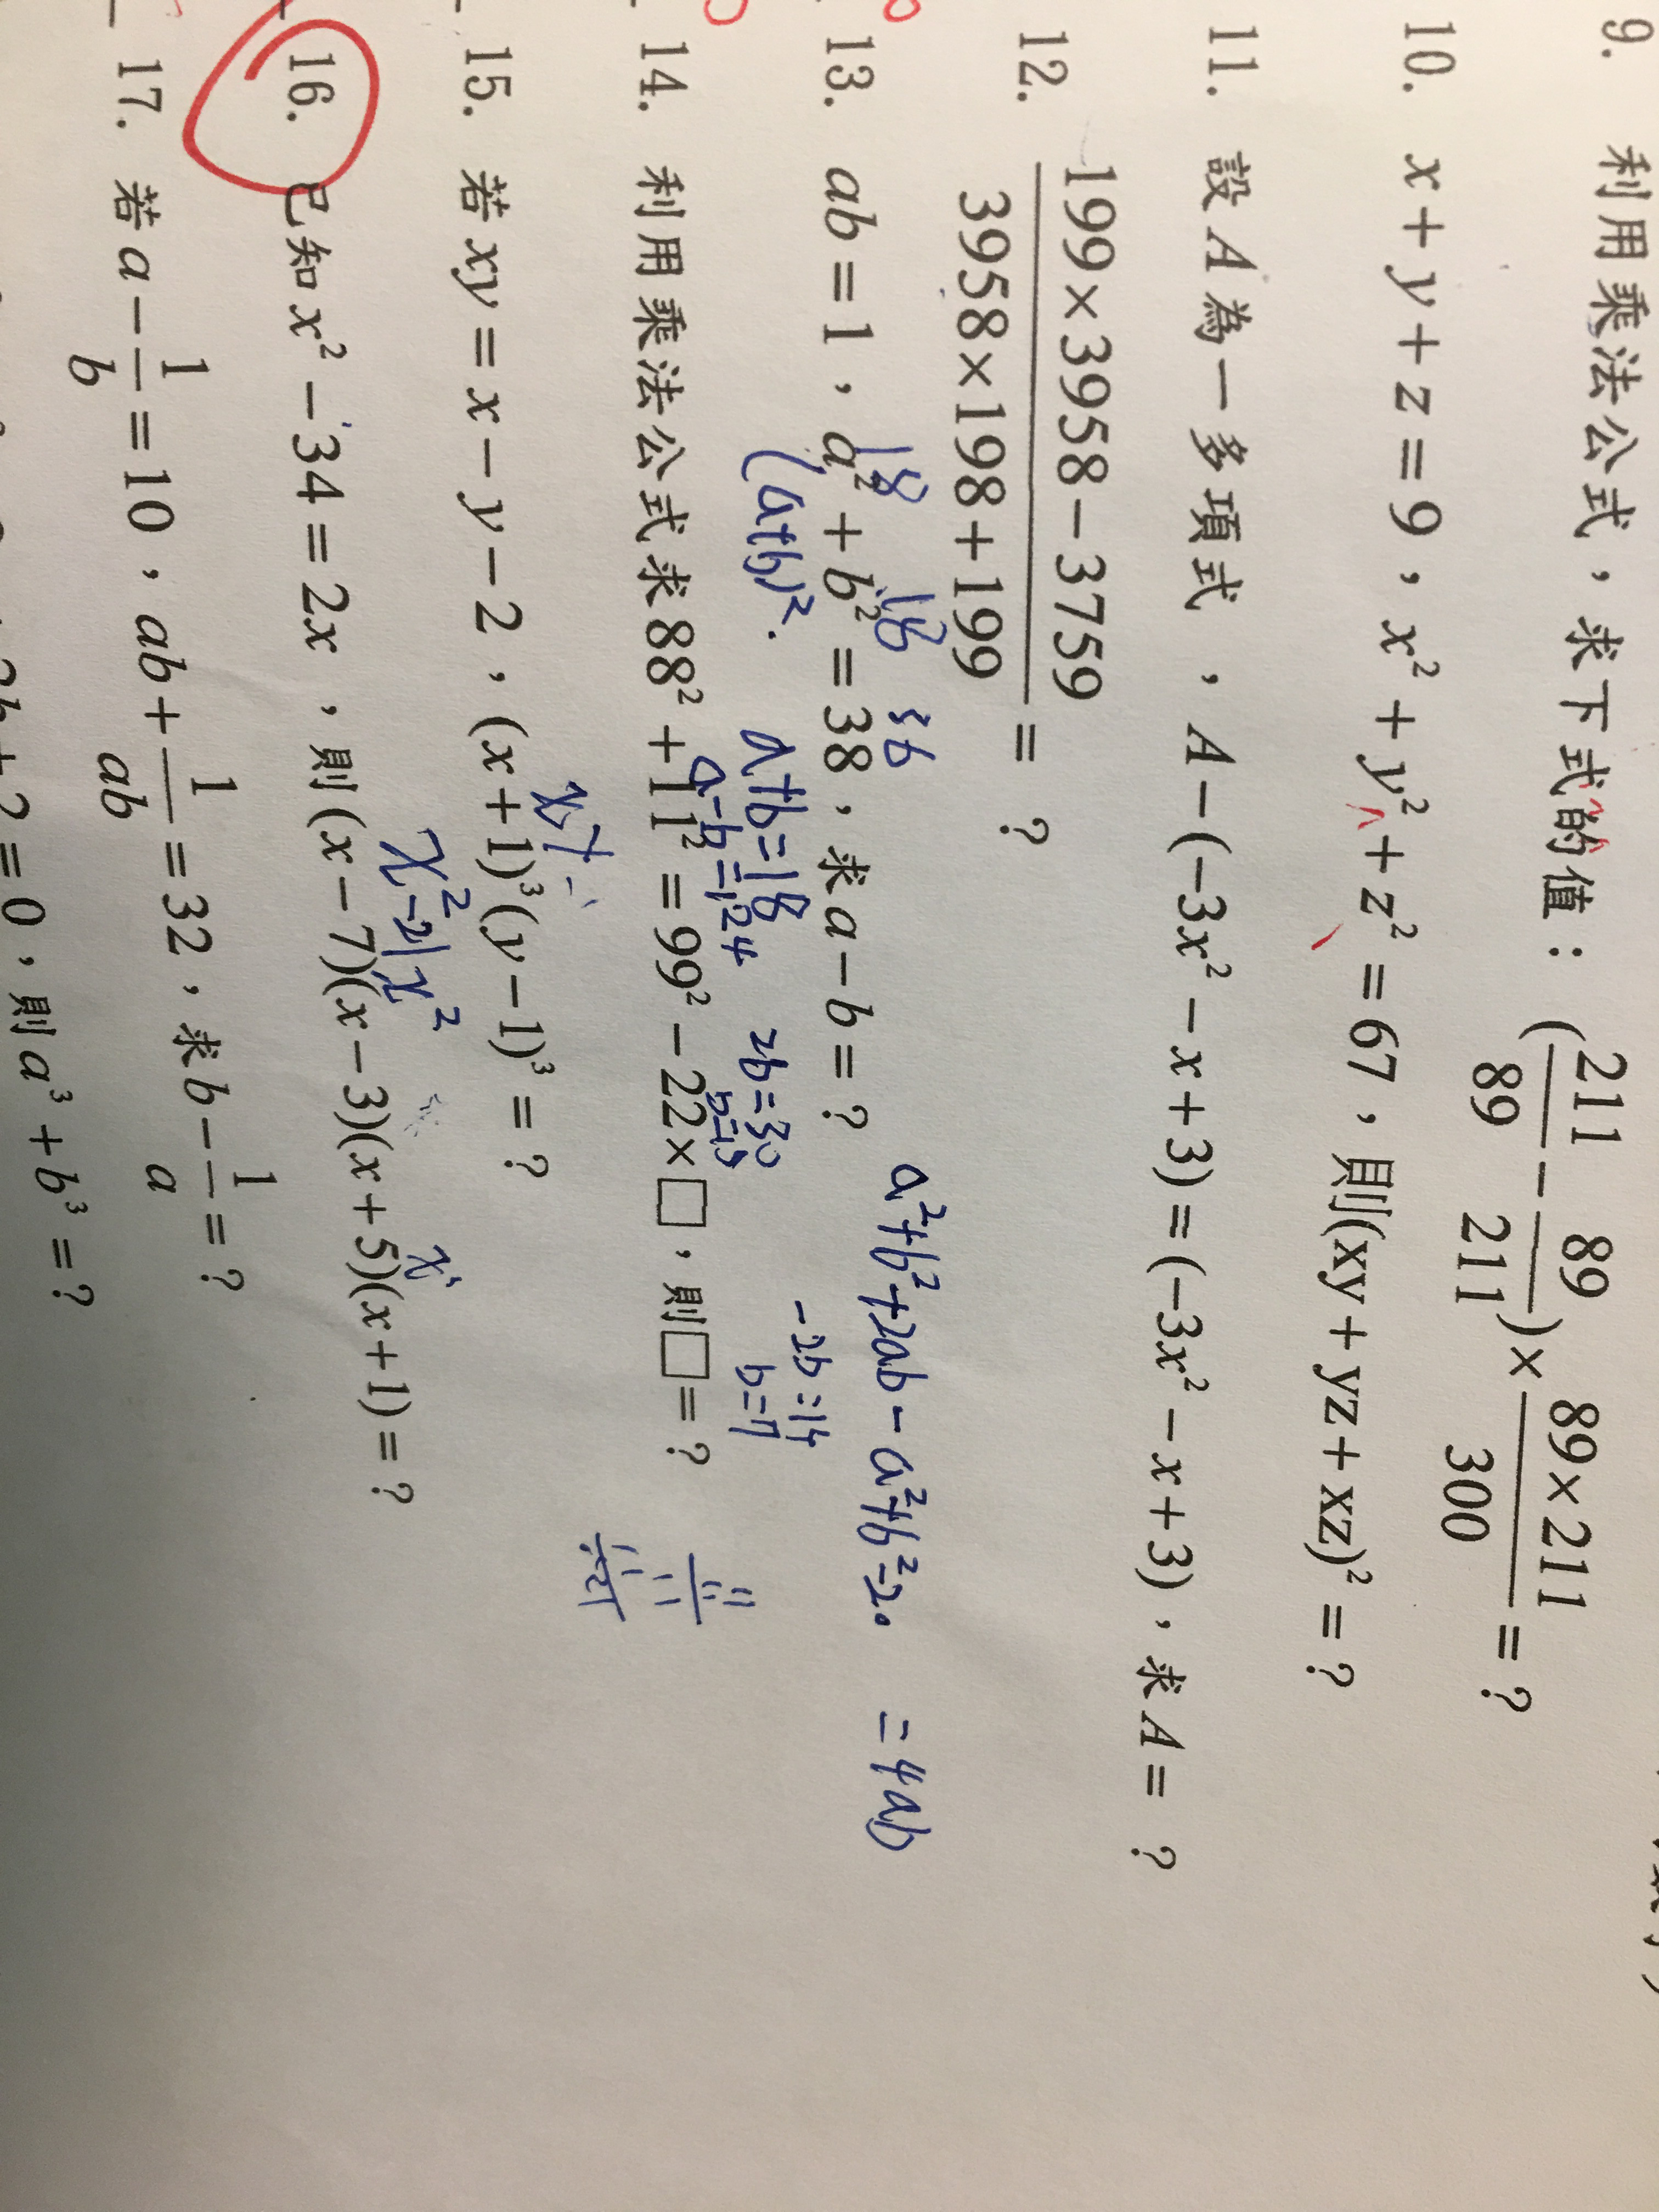 9. 利用乘法公式，求下式的值：(211/89 − 89/211) × 89×211/300 = ?
10. x + y + z = 9，x² + y² + z² = 67，則(xy + yz + xz)² = ?
11. 設 A 為一多項式，A − (−3x² − x + 3) = (−3x² − x + 3)，求 A = ?
12. 199×3958−3759 / 3958×198+199 = ?
18 18 36
13. ab = 1，a² + b² = 38，求 a − b = ?
a²+b²+2ab − a²+b²−2. = 4ab
(a+b)². a+b=18 2b=30 −2b=14
b=7
14. 利用乘法公式求 88² + 11² = 99² − 22×□，則□ = ?
15. 若 xy = x − y − 2，(x + 1)³(y − 1)³ = ?
16. 已知 x² − 34 = 2x，則 (x − 7)(x − 3)(x + 5)(x + 1) = ?
17. 若 a − 1/b = 10，ab + 1/ab = 32，求 b − 1/a = ?
= 0，則 a³ + b³ = ?